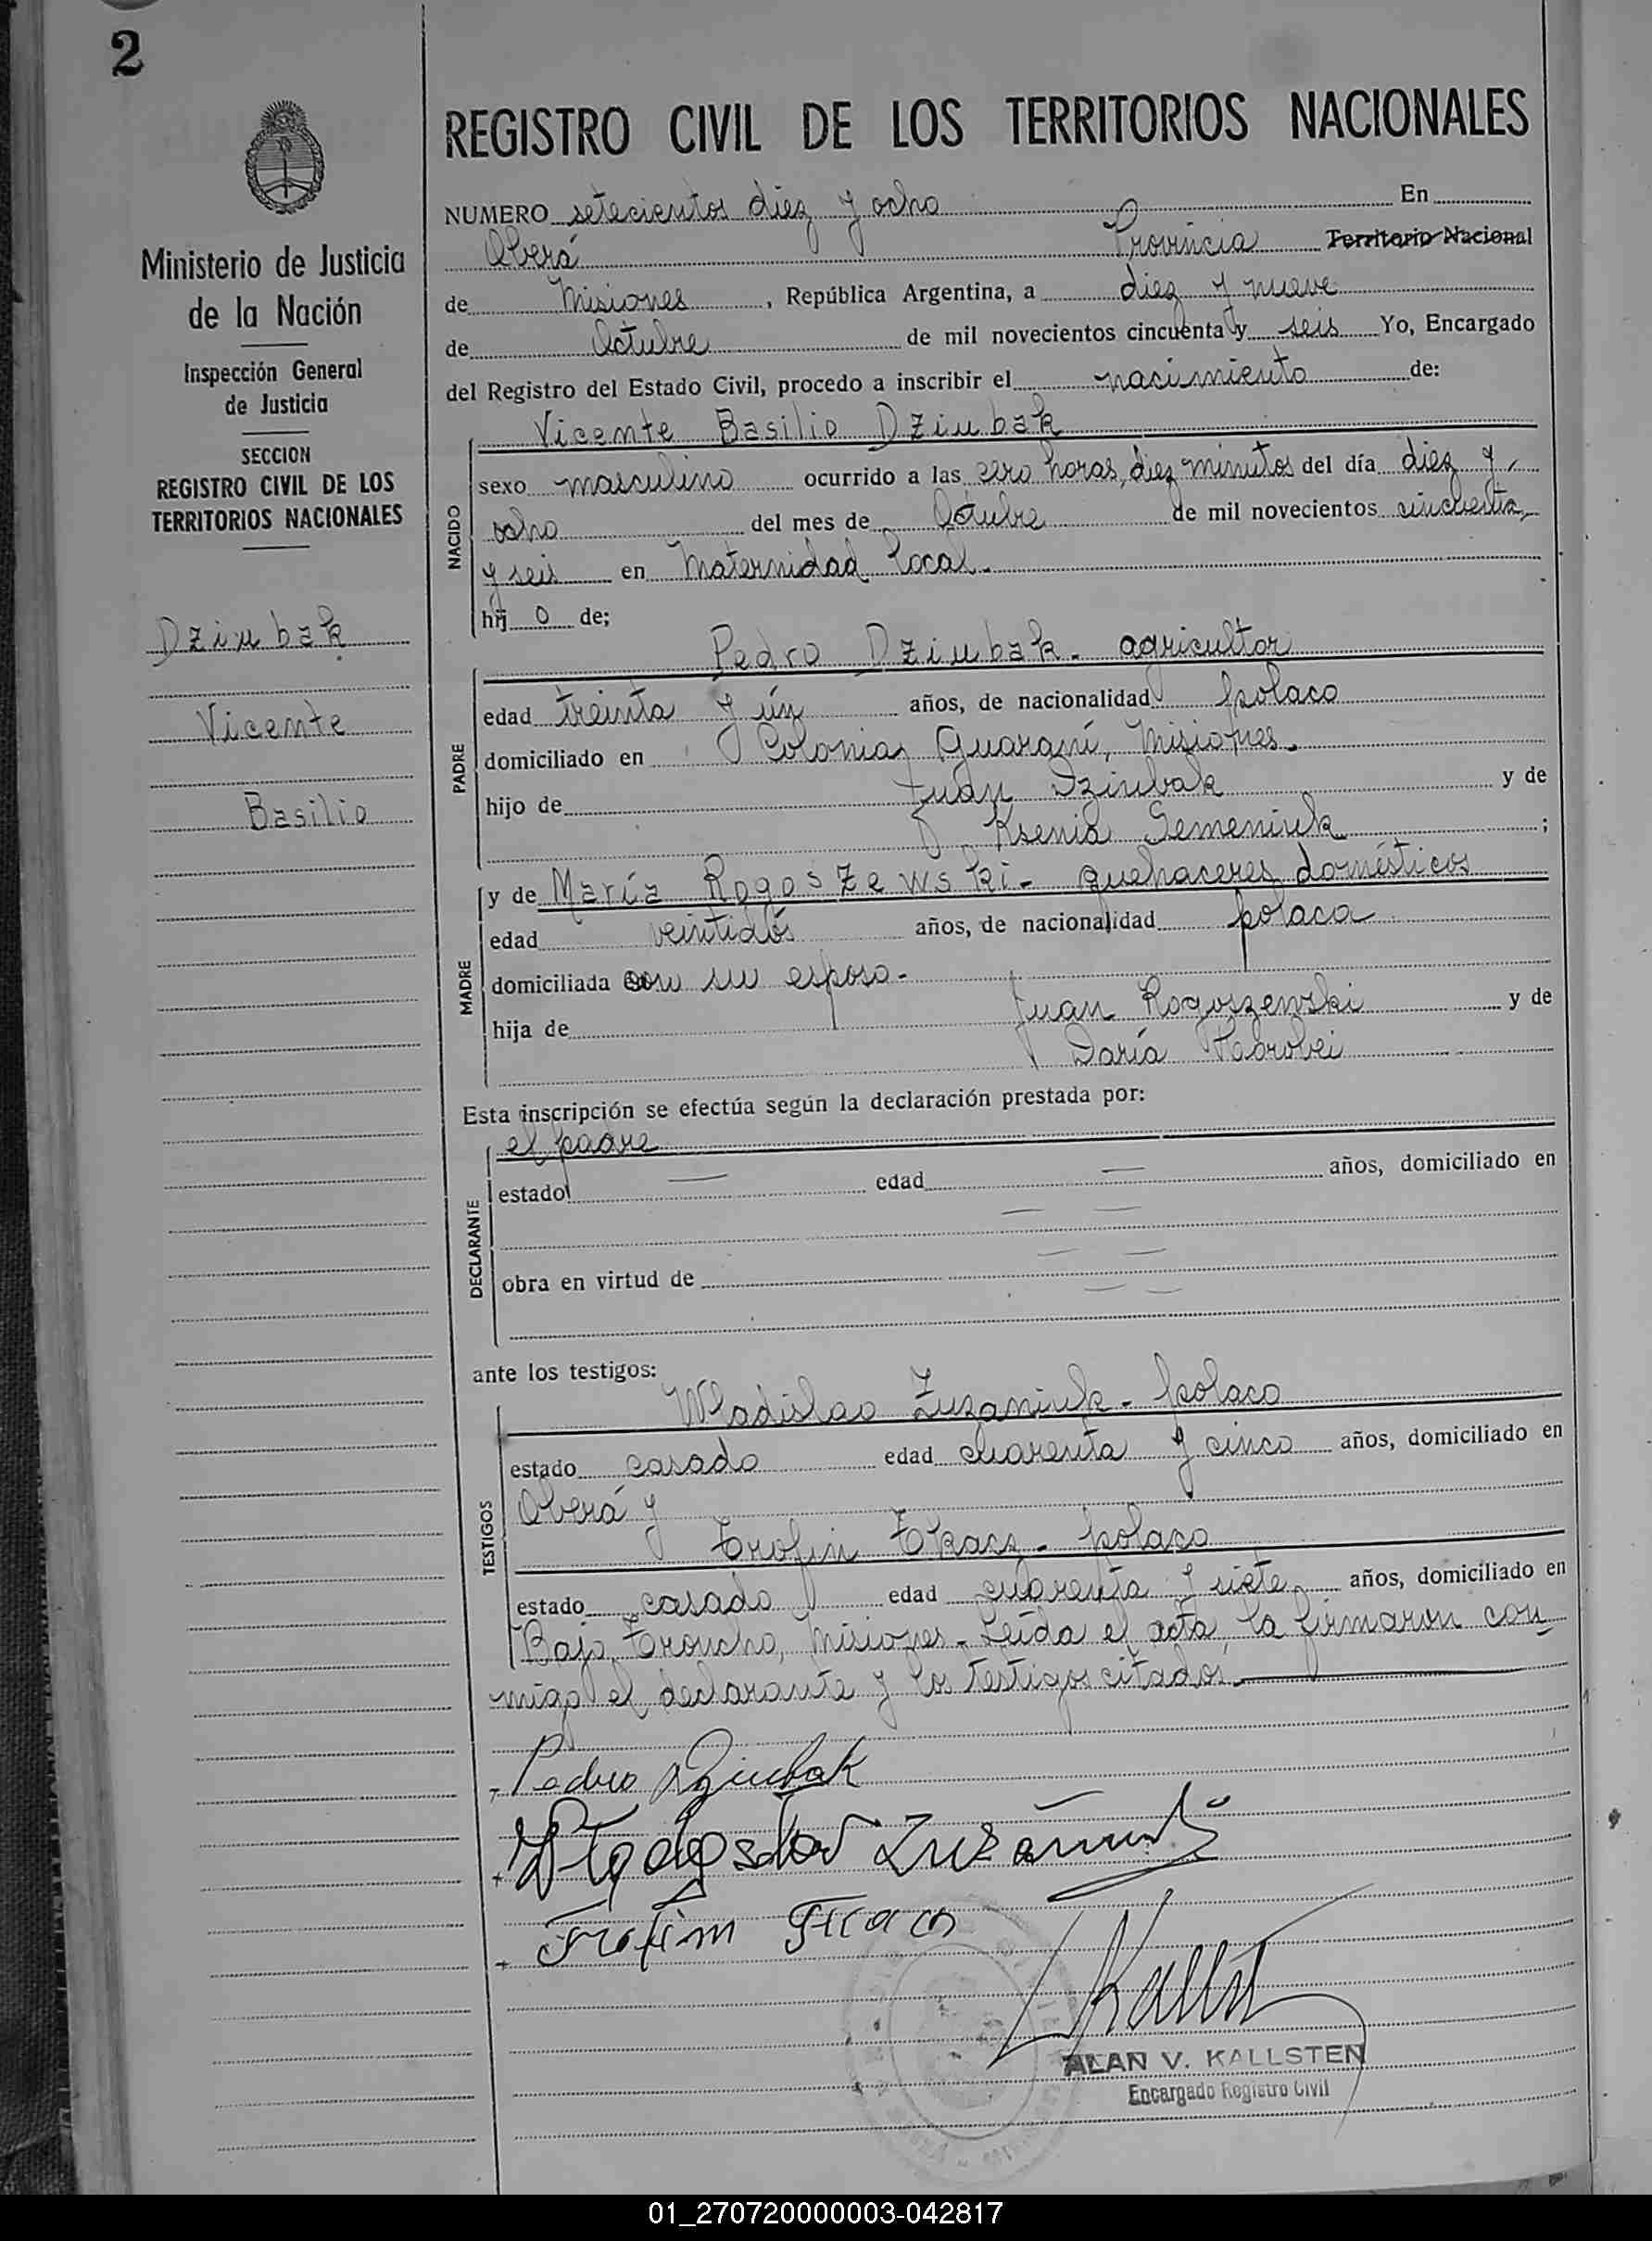 2
REGISTRO CIVIL DE LOS TERRITORIOS NACIONALES
Ministerio de Justicia
de la Nación
Inspección General
de Justicia
SECCION
REGISTRO CIVIL DE LOS
TERRITORIOS NACIONALES
Dziubak
Vicente
Basilio
NUMERO setecientos diez y ocho En
Oberá Provincia Territorio Nacional
de Misiones, República Argentina, a diez y nueve
de Octubre de mil novecientos cincuenta y seis Yo, Encargado
del Registro del Estado Civil, procedo a inscribir el nacimiento de:
NACIDO
Vicente Basilio Dziubak
sexo masculino ocurrido a las cero horas, diez minutos del día diez y
ocho del mes de Octubre de mil novecientos cincuenta
y seis en Maternidad local.
hij o de;
PADRE
Pedro Dziubak - agricultor
edad treinta y ún años, de nacionalidad polaco
domiciliado en Colonia Guaraní, Misiones.
hijo de Juan Dziubak y de
Ksenia Semeniuk ;
MADRE
y de María Rogoszewski - quehaceres domésticos
edad veintidós años, de nacionalidad polaca
domiciliada con su esposo -
hija de Juan Rogoszewski y de
Daría
Esta inscripción se efectúa según la declaración prestada por:
DECLARANTE
el padre
estado — edad — años, domiciliado en
— —
— —
obra en virtud de — —
ante los testigos:
TESTIGOS
Wladislao Zuzaniuk - polaco
estado casado edad cuarenta y cinco años, domiciliado en
Oberá y
Trofin Tkacz - polaco
estado casado edad cuarenta y siete años, domiciliado en
Bajo Troncho, Misiones - Leída el acta, la firmaron con
migo el declarante y los testigos citados.
Pedro Dziubak
Trofim Tkacz
ALAN V. KALLSTEN
Encargado Registro Civil
01_270720000003-042817